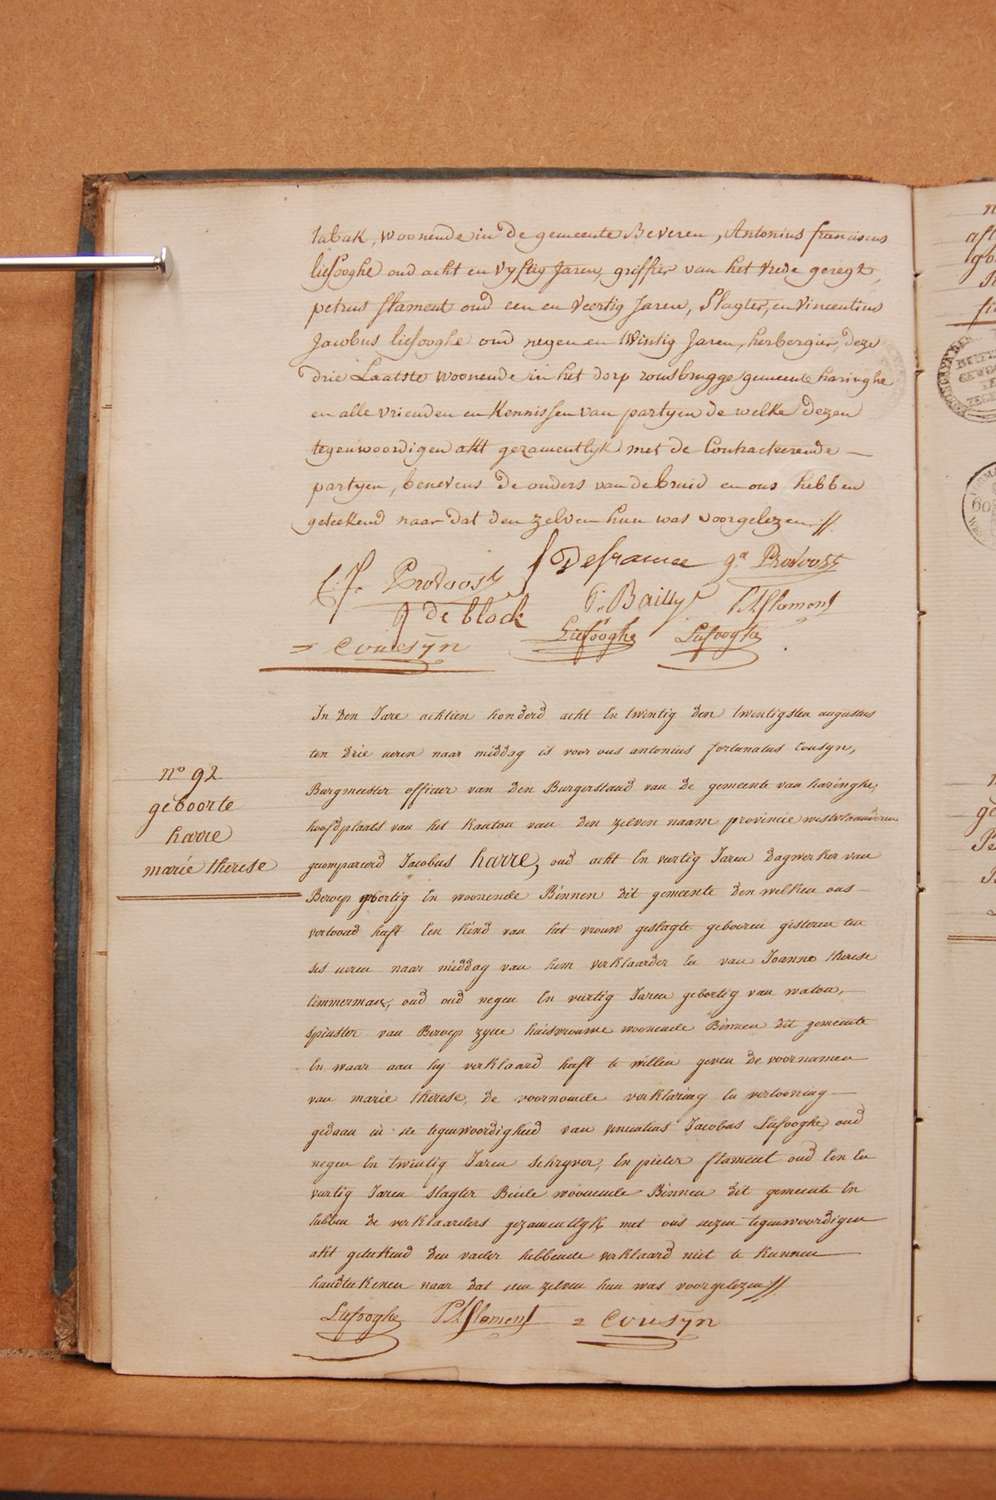 tabak, woonende in de gemeente Beveren, Antonius franciscus
liefooghe oud acht en vyftig Jaren, griffier van het vrede geregt,
petrus flament oud een en veertig Jaren, Slagter, en Vincentius
Jacobus liefooghe oud negen en twintig Jaren, herbergier, deze
drie Laatste woonende in het dorp rousbrugge gemeente haringhe
en alle vrienden en Kennissen van partyen de welke dezen
tegenwoordigen akt gezamentlyk met de Contracteerende —
partyen, benevens de ouders van de bruid en ons hebben
geteekend naar dat den zelven hun was voorgelezen //
C. J. Provoost Defrance ga Provoost
g de block P. Bailly P A flament
= Cousÿn Liefooghe Liefooghe
In den Jare achtien honderd acht En twintig den twintigsten augustus
ten drie ueren naar middag is voor ons antonius fortunatus Cousyn,
n° 92
geboorte
harre
marie therese
Burgmeester officier van den Burgerstand van de gemeente van haringhe,
hoofdplaats van het kanton van den zelven naam provincie westvlaanderen
gecompareerd Jacobus harre, oud acht En veertig Jaren dagwerker van
Beroep gebortig En woonende Binnen dit gemeente den welken ons —
vertoond heeft Een kind van het vrouw geslagte geboren gisteren ten
ses ueren naar middag van hem verklaarder En van Joanne therese
timmerman, oud oud negen En veertig Jaren gebortig van watou, —
spinster van Beroep zyne huisvrouwe woonende Binnen dit gemeente
En waar aan hy verklaard heeft te willen geven de voornamen
van marie therese, de voornoemde verklaring En vertooning —
gedaan in de tegenwoordigheid van vincentius Jacobus Liefooghe, oud
negen En twintig Jaren schryver, En pieter flament oud Een En
veertig Jaren slagter Beide woonende Binnen dit gemeente En
hebben de verklaarders gezamentlyk met ons dezen tegenwoordigen
akt geteekend den vader hebbende verklaard niet te kunnen
handteekenen naar dat den zelven hun was voorgelezen //
Liefooghe P A flament = Cousÿn